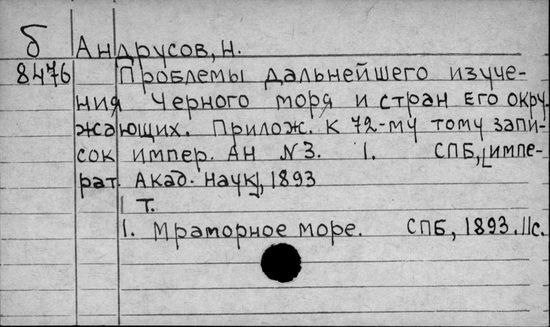 б Андрусов, Н.
8476 Проблемы дальнейшего изуче-
ния Черного моря и стран его окру
жающих. Прилож. к 72-му тому запи-
сок импер. АН N3. 1. СПБ, [импе-
рат. Акад. наук], 1893
Т.
1. Мраморное море. СПБ, 1893. 11с.